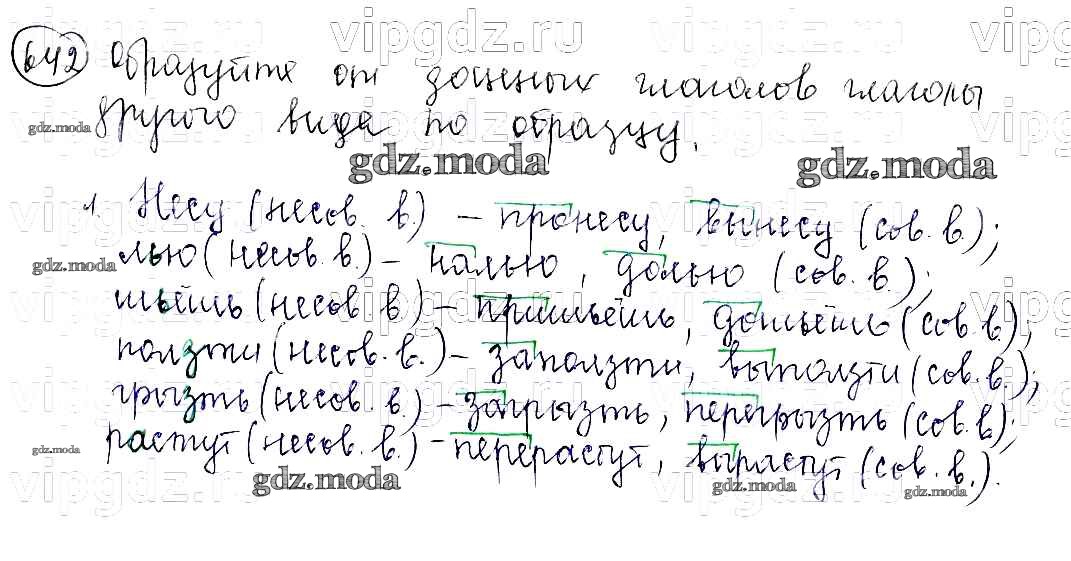 642 Образуйте от даценых глаголов глаголы
другого вида по образцу.
1. Несу (несов. в.) – пронесу, вынесу (сов. в.);
лью (несов. в.) – налью, долью (сов. в.);
шьёшь (несов. в.) – пришьёшь, дошьёшь (сов. в.);
ползти (несов. в.) – заползти, выползти (сов. в.);
грызть (несов. в.) – загрызть, перегрызть (сов. в.);
растут (несов. в.) – перерастут, вырастут (сов. в.).
vipgdz.ru
gdz.moda